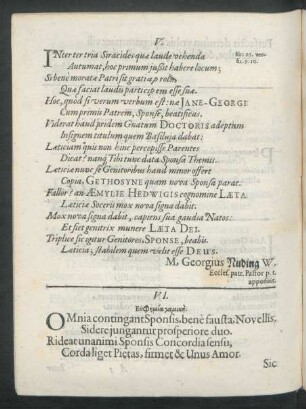 V.
INter ter tria Siracides quæ laude vehenda
Autumat, hoc primum jussit habere locum;
Si benè moratæ Patri sit gratia prolis,
Quæ faciat laudis participem esse suæ.
Hoc, quòd si verum verbum est: næ JANE-GEORGI
Cumprimis Patrem, Sponse, beatificas.
Viderat haud pridem Gnatum DOCTORIS adeptum
Insignem titulum quem Basileja dabat:
Lætitiam quis non hinc percepisse Parentes
Dicat? namq; Tibi tunc data Sponsa Themis.
Lætitiæ nunc se Genitoribus haud minor offert
Copia, GETHOSYNE quam nova Sponsa parat.
Fallor? an ÆMYLIE HEDWIGIS cognomine LÆTA
Lætitiæ Soceris mox nova signa dabit.
Mox nova signa dabit, capiens sua gaudia Natos:
Et fiet genitrix munere LÆTA DEI.
Triplice sic igitur Genitores, SPONSE, beabis
Lætitiâ; stabilem quem velit esse DEUS.
M. Georgius Nuding W.
Eccles. patr. Pastor p. t.
apposuit.
VI.
OMnia contingant Sponsis, benè fausta, Novellis,
Sidere jungantur prosperiore duo.
Rideat unanimi Sponsis Concordia sensu,
Corda liget Pietas, firmet & Unus Amor.
Sic